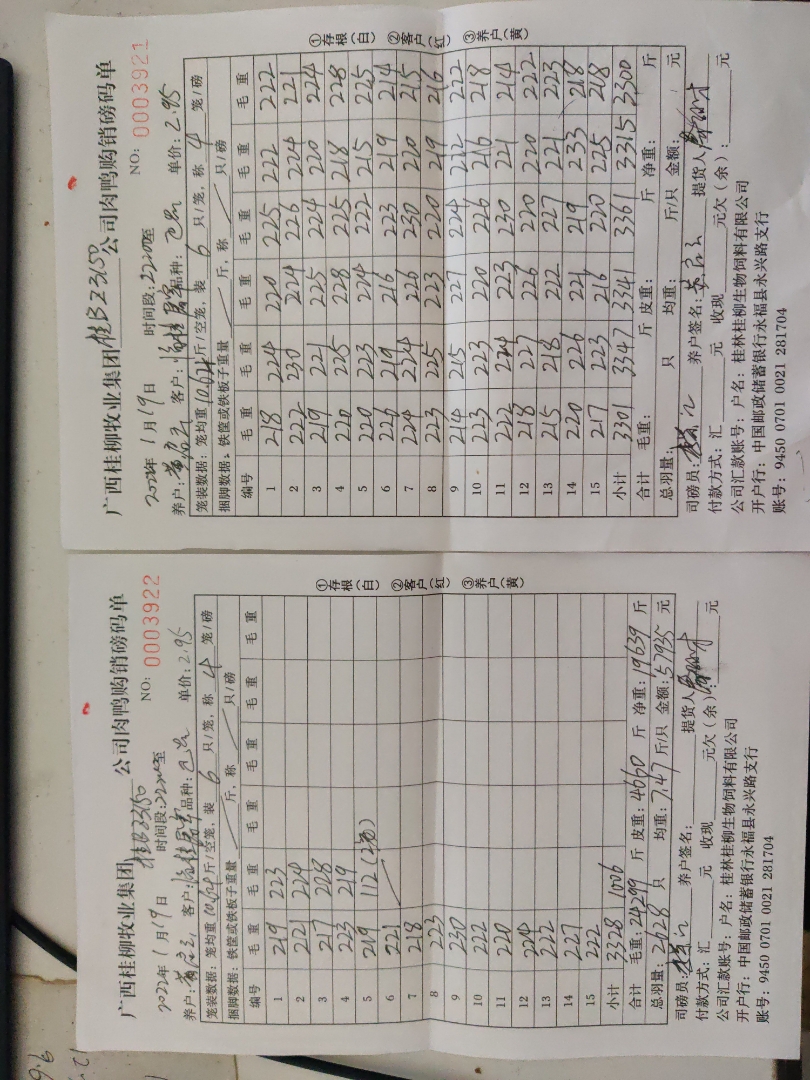 广西桂柳牧业集团桂B23150公司肉鸭购销磅码单
2022年1月19日 时间段:22:00至 NO: 0003921
养户: 客户: 品种: 单价: 2.95
笼装数据: 笼均重 斤/空笼, 装 6 只/笼, 称 4 笼/磅
捆脚数据: 铁筐或铁板子重量 斤, 称 只/磅
编号 毛重 毛重 毛重 毛重 毛重 毛重
1 218 224 220 225 222 222
2 222 230 224 226 224 221
3 219 221 225 224 220 224
4 220 225 228 225 218 228
5 220 223 224 222 215 225
6 226 219 216 223 219 214
7 224 224 226 230 220 215
8 223 225 223 220 219 216
9 214 215 227 224 222 222
10 223 223 220 226 216 218
11 222 224 223 230 221 214
12 218 227 226 220 220 222
13 215 218 222 227 221 223
14 220 226 221 219 233 218
15 217 223 216 220 225 218
小计 3301 3347 3341 3361 3315 3300
合计 毛重: 斤 皮重: 斤 净重: 斤
总羽量: 只 均重: 斤/只 金额: 元
司磅员: 养户签名: 提货人
付款方式: 汇 元 收现 元欠(余): 元
公司汇款账号: 户名: 桂林桂柳生物饲料有限公司
开户行: 中国邮政储蓄银行永福县永兴路支行
账号: 9450 0701 0021 281704
①存根(白) ②客户(红) ③养户(黄)
广西桂柳牧业集团桂B23150公司肉鸭购销磅码单
2022年1月19日 时间段:22:00至 NO: 0003922
养户: 客户: 品种: 单价: 2.95
笼装数据: 笼均重 斤/空笼, 装 6 只/笼, 称 4 笼/磅
捆脚数据: 铁筐或铁板子重量 斤, 称 只/磅
编号 毛重 毛重 毛重 毛重 毛重 毛重
1 219 223
2 221 224
3 217 228
4 223 219
5 219 112
6 221
7 218
8 223
9 230
10 222
11 220
12 224
13 222
14 227
15 222
小计 3328 1006
合计 毛重: 24299 斤 皮重: 4660 斤 净重: 19639 斤
总羽量: 2628 只 均重: 7.47 斤/只 金额: 57935 元
司磅员: 养户签名: 提货人
付款方式: 汇 元 收现 元欠(余): 元
公司汇款账号: 户名: 桂林桂柳生物饲料有限公司
开户行: 中国邮政储蓄银行永福县永兴路支行
账号: 9450 0701 0021 281704
①存根(白) ②客户(红) ③养户(黄)